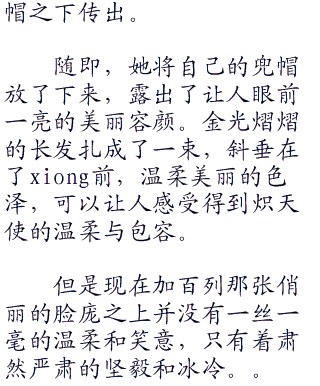 帽之下传出。
随即，她将自己的兜帽
放了下来，露出了让人眼前
一亮的美丽容颜。金光熠熠
的长发扎成了一束，斜垂在
了xiong前，温柔美丽的色
泽，可以让人感受得到炽天
使的温柔与包容。
但是现在加百列那张俏
丽的脸庞之上并没有一丝一
毫的温柔和笑意，只有着肃
然严肃的坚毅和冰冷。。